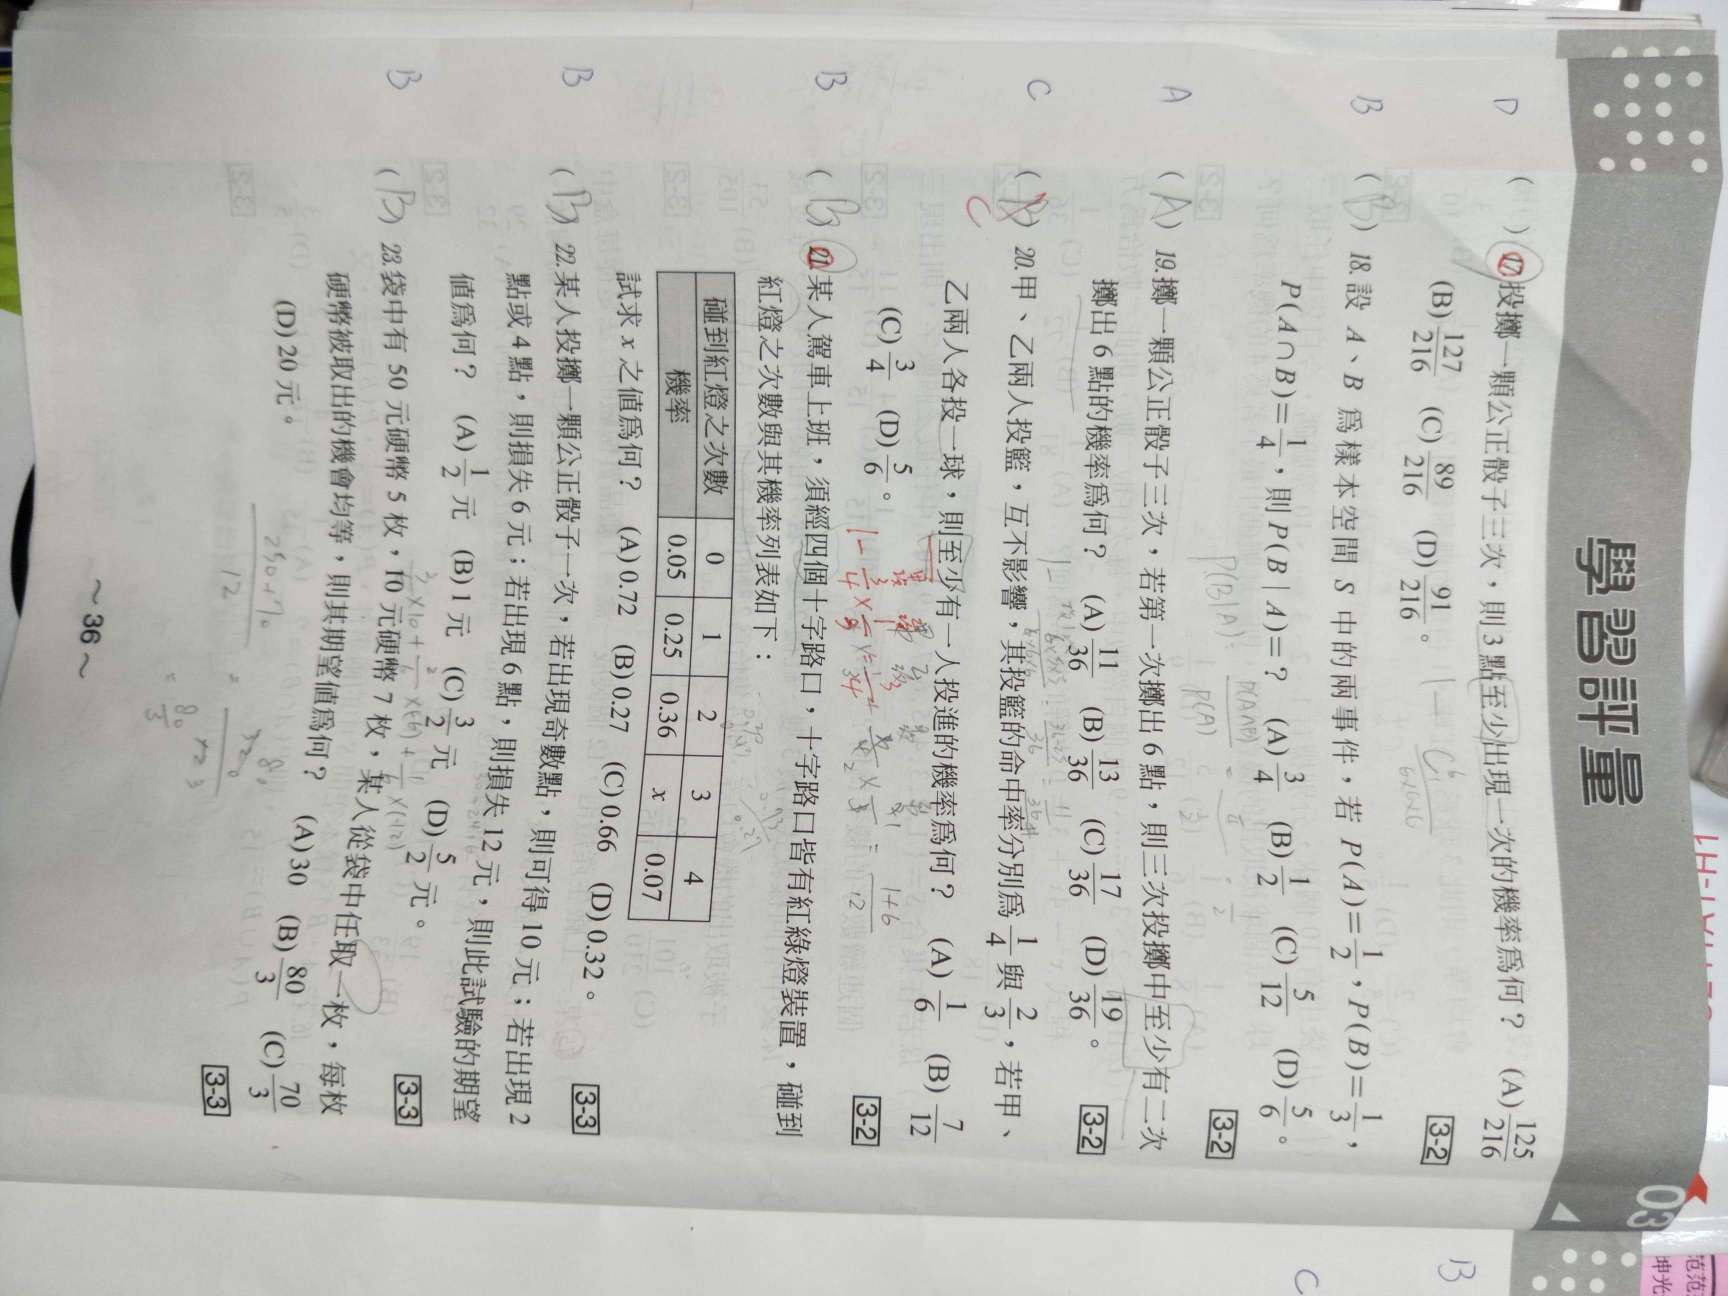 學習評量 03
D ( ) 17.投擲一顆公正骰子三次，則3點至少出現一次的機率為何？ (A)125/216
(B)127/216 (C)89/216 (D)91/216。 3-2
B (B) 18.設 A、B 為樣本空間 S 中的兩事件，若 P(A)=1/2，P(B)=1/3，
P(A∩B)=1/4，則 P(B｜A)=？ (A)3/4 (B)1/2 (C)5/12 (D)5/6。 3-2
A (A) 19.擲一顆公正骰子三次，若第一次擲出6點，則三次投擲中至少有二次
擲出6點的機率為何？ (A)11/36 (B)13/36 (C)17/36 (D)19/36。 3-2
C ( ) C 20.甲、乙兩人投籃，互不影響，其投籃的命中率分別為1/4與2/3，若甲、
乙兩人各投一球，則至少有一人投進的機率為何？ (A)1/6 (B)7/12
(C)3/4 (D)5/6。 3-2
B (B) 21.某人駕車上班，須經四個十字路口，十字路口皆有紅綠燈裝置，碰到
紅燈之次數與其機率列表如下：
碰到紅燈之次數 0 1 2 3 4
機率 0.05 0.25 0.36 x 0.07
試求 x 之值為何？ (A)0.72 (B)0.27 (C)0.66 (D)0.32。 3-3
B (B) 22.某人投擲一顆公正骰子一次，若出現奇數點，則可得10元；若出現2
點或4點，則損失6元；若出現6點，則損失12元，則此試驗的期望
值為何？ (A)1/2元 (B)1元 (C)3/2元 (D)5/2元。 3-3
B (B) 23.袋中有50元硬幣5枚，10元硬幣7枚，某人從袋中任取一枚，每枚
硬幣被取出的機會均等，則其期望值為何？ (A)30 (B)80/3 (C)70/3
(D)20元。 3-3
～36～
B
C